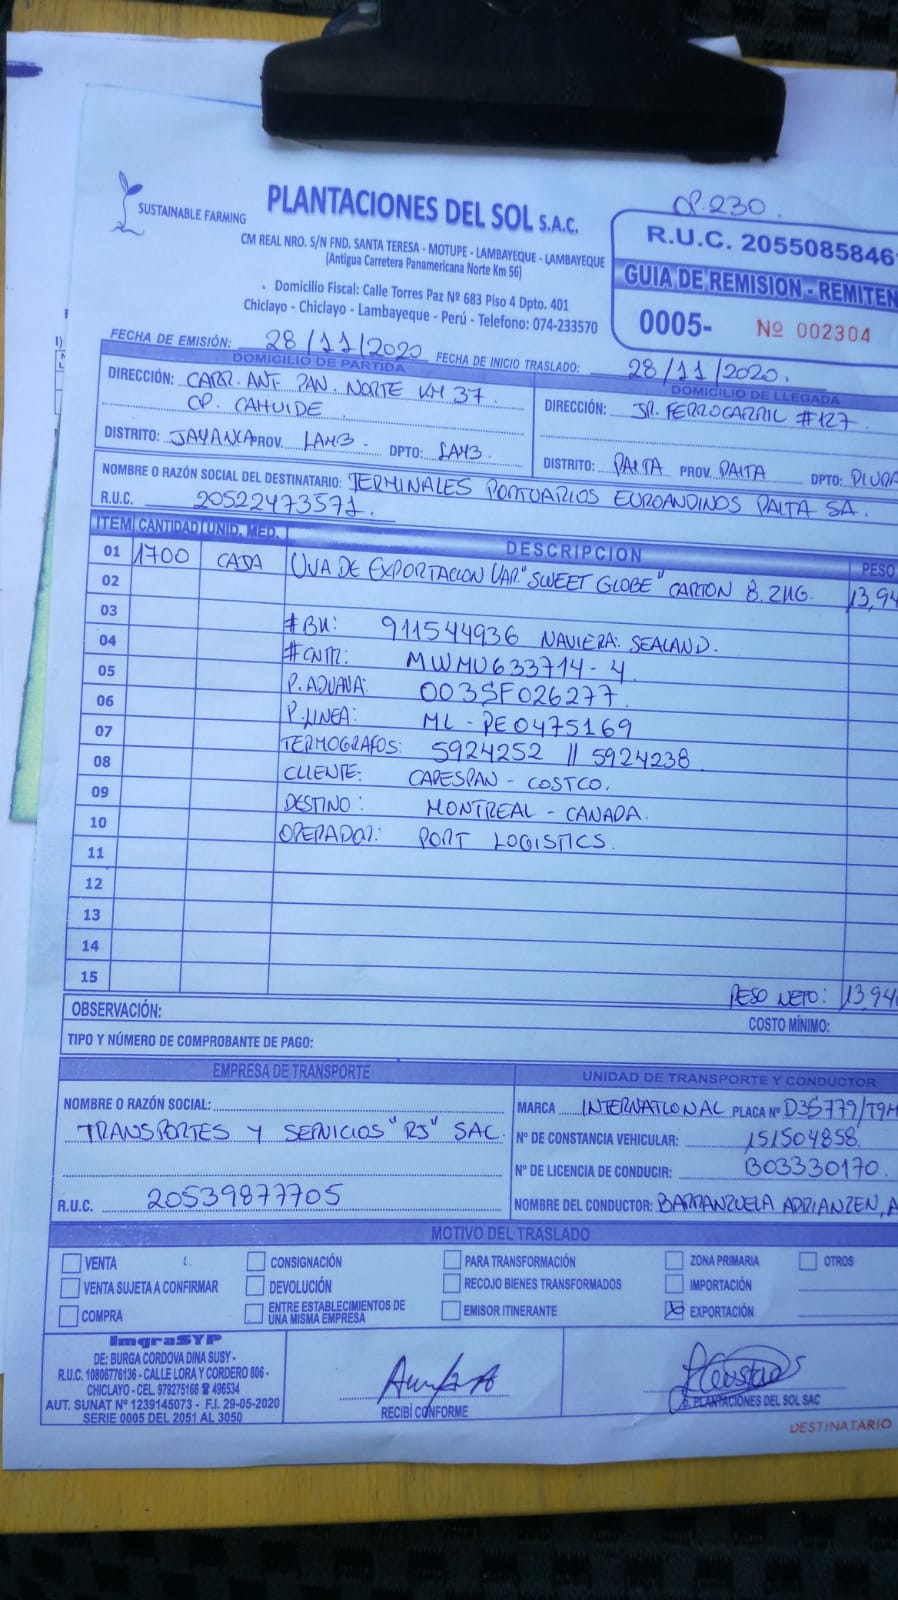 SUSTAINABLE FARMING
PLANTACIONES DEL SOL S.A.C.
CM REAL NRO. S/N FND. SANTA TERESA - MOTUPE - LAMBAYEQUE - LAMBAYEQUE
(Antigua Carretera Panamericana Norte Km 56)
Domicilio Fiscal: Calle Torres Paz Nº 683 Piso 4 Dpto. 401
Chiclayo - Chiclayo - Lambayeque - Perú - Telefono: 074-233570
OP. 230.
R.U.C. 2055085846
GUIA DE REMISION - REMITEN
0005- Nº 002304
FECHA DE EMISIÓN: 28/11/2020 FECHA DE INICIO TRASLADO: 28/11/2020.
DOMICILIO DE PARTIDA
DIRECCIÓN: CARR. ANT. PAN. NORTE KM 37.
CP. CAHUIDE
DISTRITO: JAYANCA PROV. LAMB. DPTO: LAMB.
DOMICILIO DE LLEGADA
DIRECCIÓN: JR. FERROCARRIL #127.
DISTRITO: PAITA PROV. PAITA DPTO: PIURA
NOMBRE O RAZÓN SOCIAL DEL DESTINATARIO: TERMINALES PORTUARIOS EUROANDINOS PAITA SA.
R.U.C. 20522473571.
ITEM CANTIDAD UNID. MED. DESCRIPCION PESO
01 1700 CAJA UVA DE EXPORTACION VAR. "SWEET GLOBE" CARTON 8.2KG. 13,94
02
03 #BK: 911544936 NAVIERA: SEALAND.
04 #CNTR: MWMU633714-4
05 P. ADUANA: 003SF026277.
06 P. LINEA: ML-PE0475169
07 TERMOGRAFOS: 5924252 // 5924238
08 CLIENTE: CAPESPAN - COSTCO.
09 DESTINO: MONTREAL - CANADA.
10 OPERADOR: PORT LOGISTICS.
11
12
13
14
15 PESO NETO: 13,94
OBSERVACIÓN:
COSTO MÍNIMO:
TIPO Y NÚMERO DE COMPROBANTE DE PAGO:
EMPRESA DE TRANSPORTE
NOMBRE O RAZÓN SOCIAL:
TRANSPORTES Y SERVICIOS "RJ" SAC.
R.U.C. 20539877705
UNIDAD DE TRANSPORTE Y CONDUCTOR
MARCA INTERNATIONAL PLACA Nº D3S779/T9M
Nº DE CONSTANCIA VEHICULAR: 151504858.
Nº DE LICENCIA DE CONDUCIR: B03330170.
NOMBRE DEL CONDUCTOR: BARRANZUELA ADRIANZEN, A
MOTIVO DEL TRASLADO
VENTA CONSIGNACIÓN PARA TRANSFORMACIÓN ZONA PRIMARIA OTROS
VENTA SUJETA A CONFIRMAR DEVOLUCIÓN RECOJO BIENES TRANSFORMADOS IMPORTACIÓN
COMPRA ENTRE ESTABLECIMIENTOS DE UNA MISMA EMPRESA EMISOR ITINERANTE X EXPORTACIÓN
ImgraSYP
DE: BURGA CORDOVA DINA SUSY -
R.U.C. 10806776136 - CALLE LORA Y CORDERO 806 -
CHICLAYO - CEL. 979275166 ☎ 496534
AUT. SUNAT Nº 1239145073 - F.I. 29-05-2020
SERIE 0005 DEL 2051 AL 3050
RECIBÍ CONFORME
PLANTACIONES DEL SOL SAC
DESTINATARIO